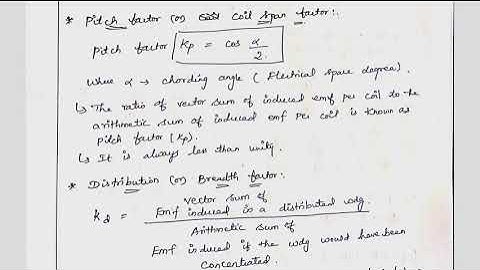 * Pitch factor (or) Coil Span factor:.
Pitch factor Kp = cos α/2.
Where α → chording angle (Electrical space degrees).
↳ The ratio of vector sum of induced emf per coil to the
arithmetic sum of induced emf per coil is known as
pitch factor (Kp).
↳ It is always less than unity.
* Distribution (or) Breadth factor:.
Kd = vector sum of
Emf induced in a distributed wdg.
Arithmetic sum of
Emf induced if the wdg would have been
concentrated.